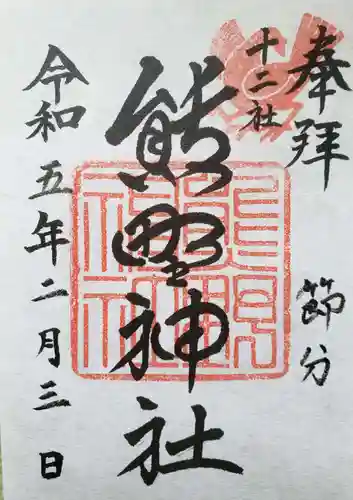 奉拝
節分
十二社
熊野神社
令和五年二月三日
熊野
神社